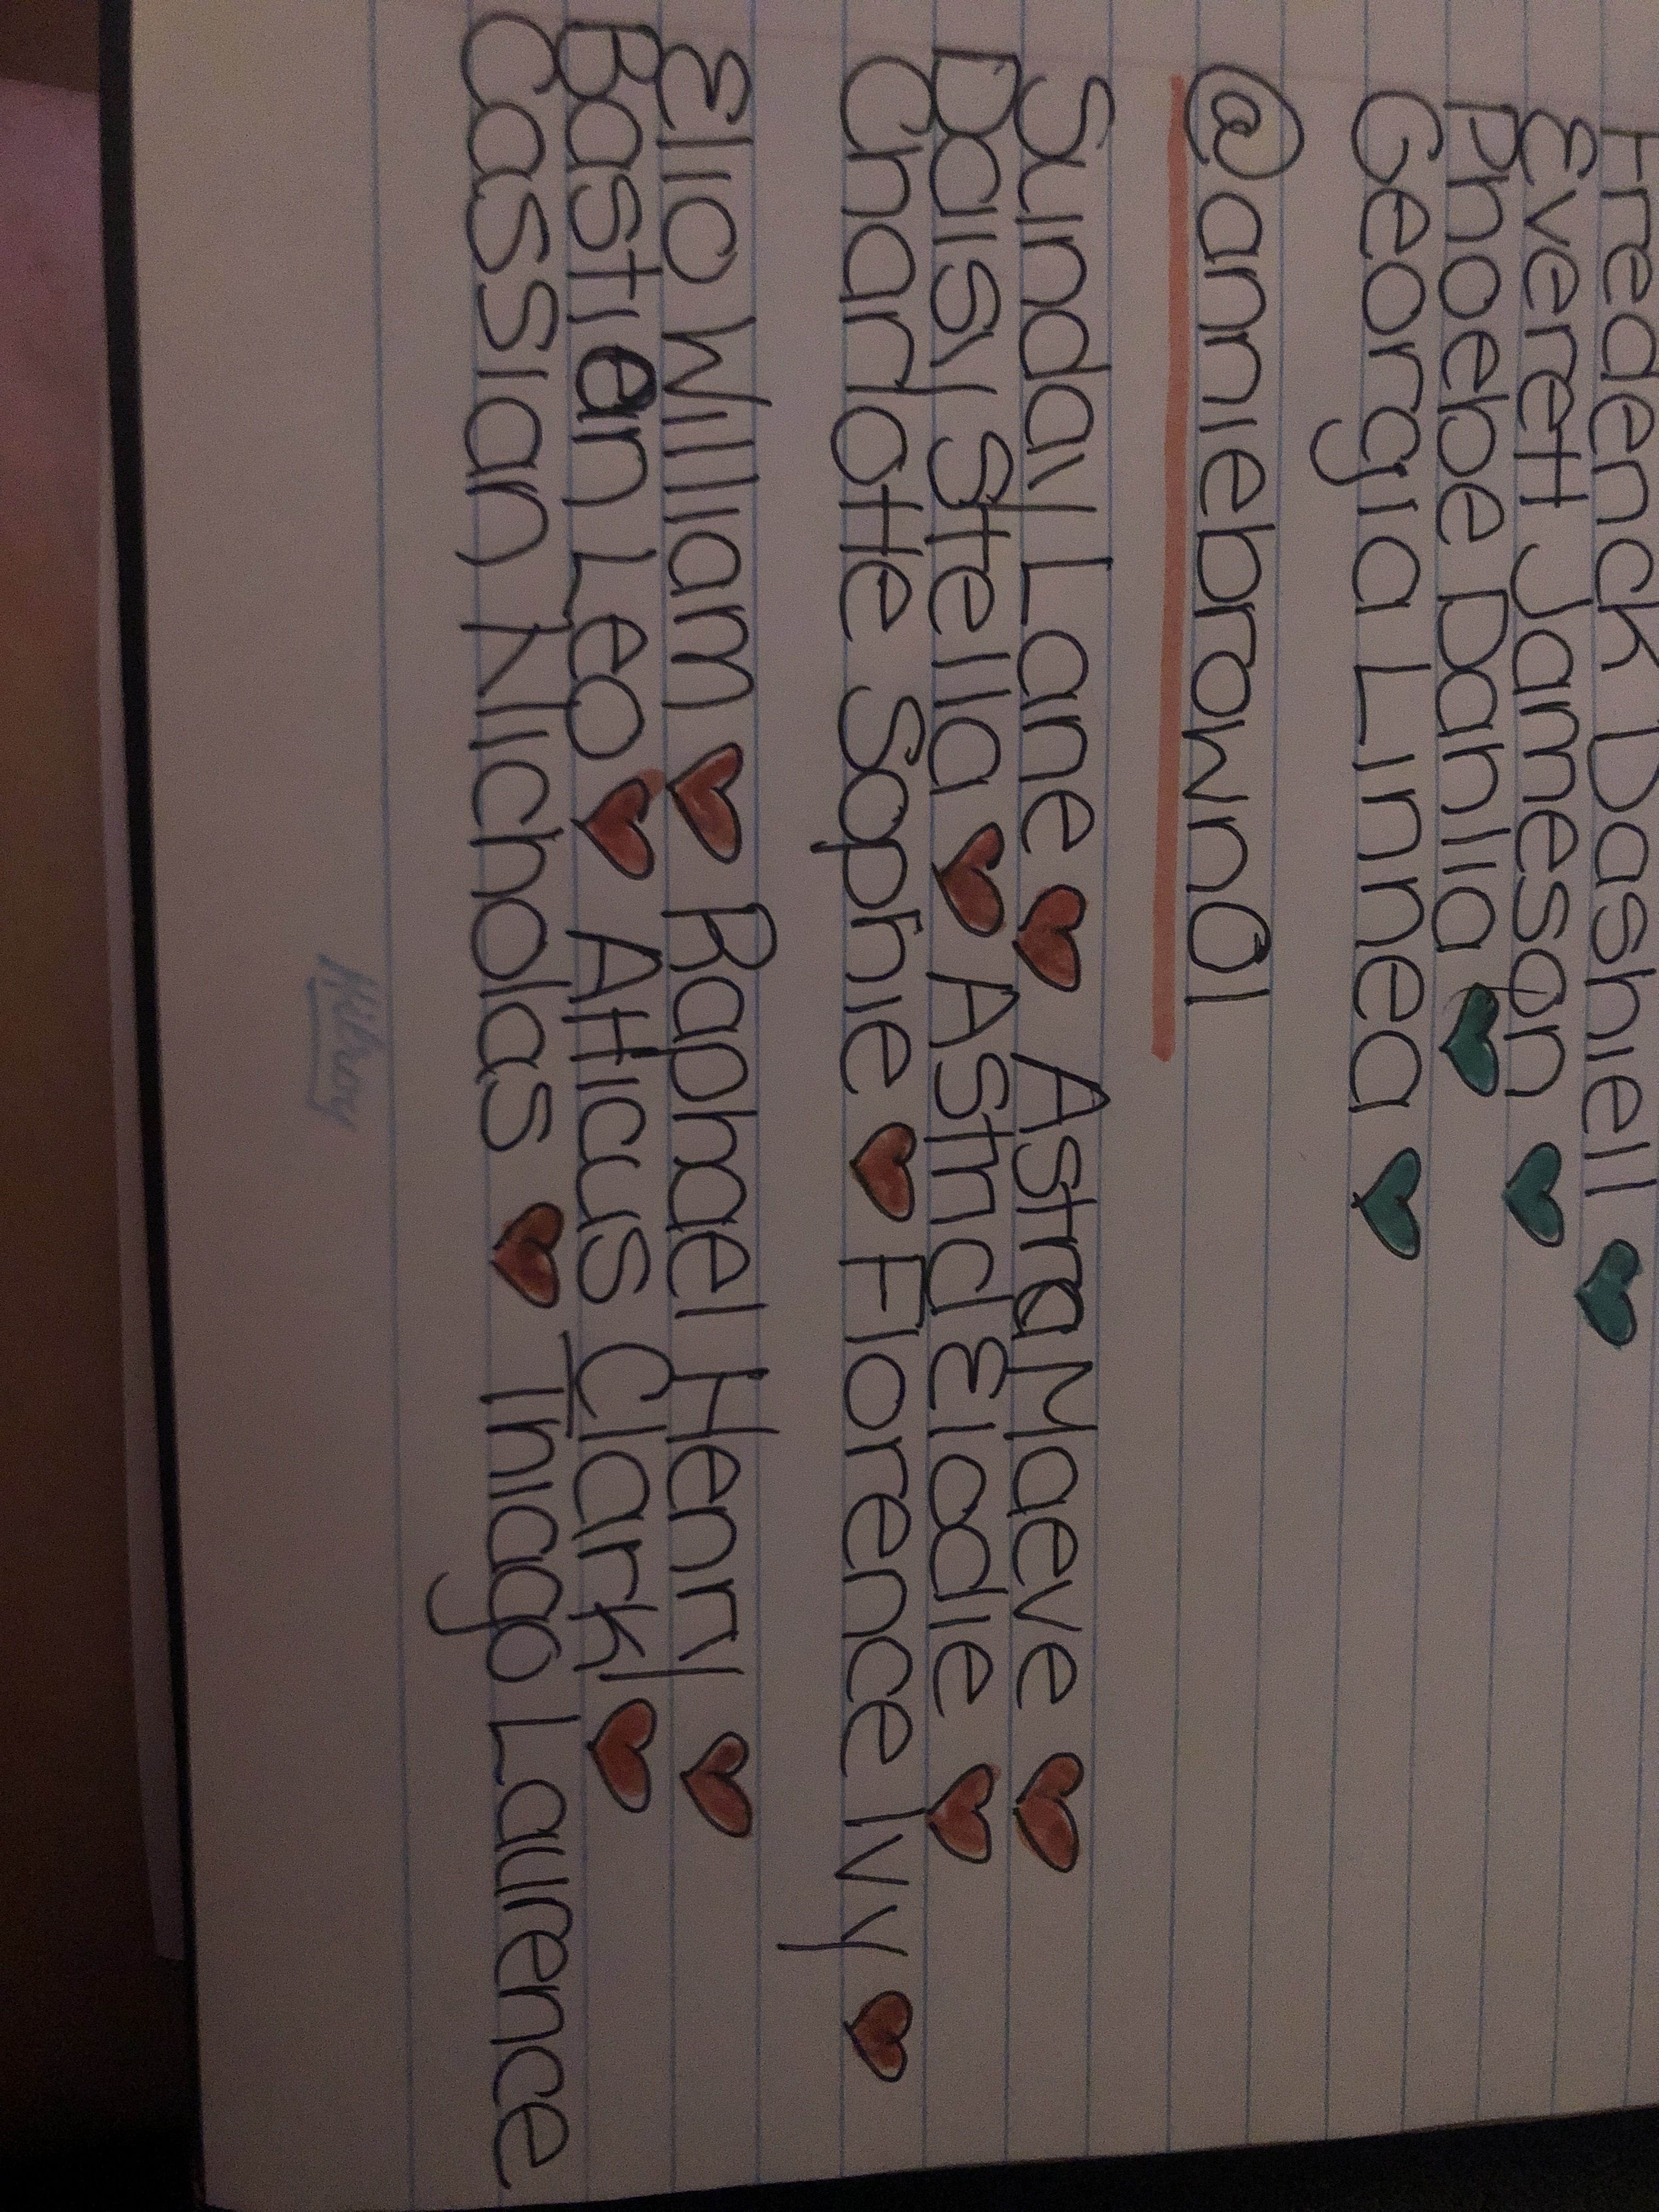 Frederick Dashiell
Everett Jameson
Phoebe Dahlia
Georgia Linnea
@anniebrown01
Sunday Lane Astra Maeve
Daisy Stella Astrid Elodie
Charlotte Sophie Florence Ivy
Elio William Raphael Henry
Bastien Leo Atticus Clark
Cassian Nicholas Thiago Laurence
Hilroy